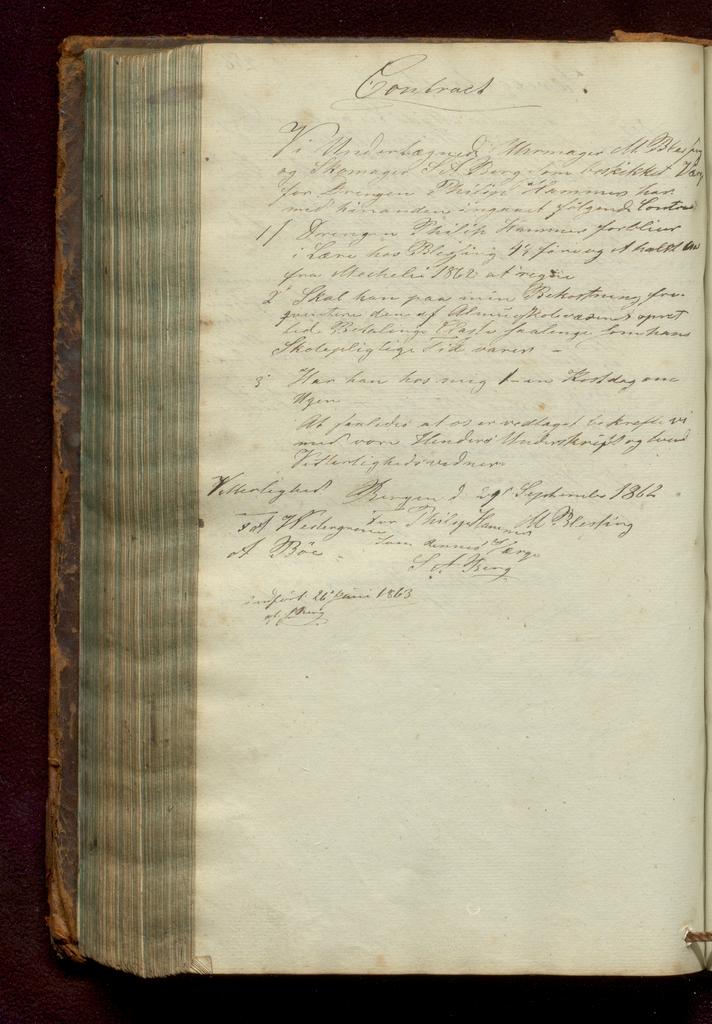 Contract
Vi Undertegnede Uhrmager M. Blessing
og Skomager S A Berg som beskikket Værge
for Drengen Philip Hammer har
med hinanden ingaaet følgende Contract
1/ Drengen Philip Hammer forbliver
i Lære hos Blessing 4½ fire og et halvt Aar
fra Mecheli 1862 at regne
2 Skal han paa min Bekostning fre-
qventere den af Almueskolevæsenet opret
tede Betalings Classe saalænge som hans
Skolepligtige Tid varer -
3 Har han hos mig 1 - en Kostdag om
Ugen
At saaledes at os er vedtaget bekræfte vi
med vore Henders Underskrift og tvende
Vitterlighedsvidner
Vitterlighed Bergen d. 29 September 1862
Westergreen For Philip Hammer M Blessing
A Böe - som dennes Værge
S. A. Berg
indført 26 Juni 1863
af Berg